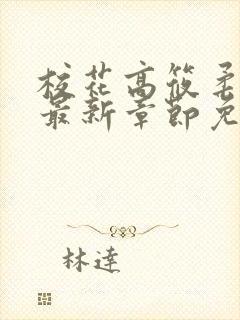 校花高筱柔
最新章節免
林達